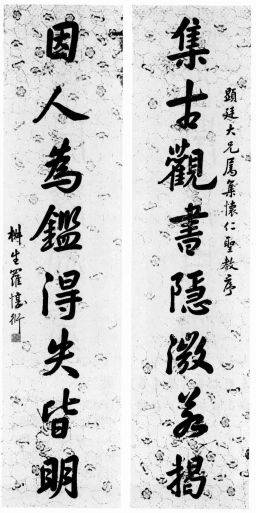 顯廷大兄屬集懷仁聖教序
集古觀書隱微若揭
因人為鑑得失皆明
椒生羅惇衍